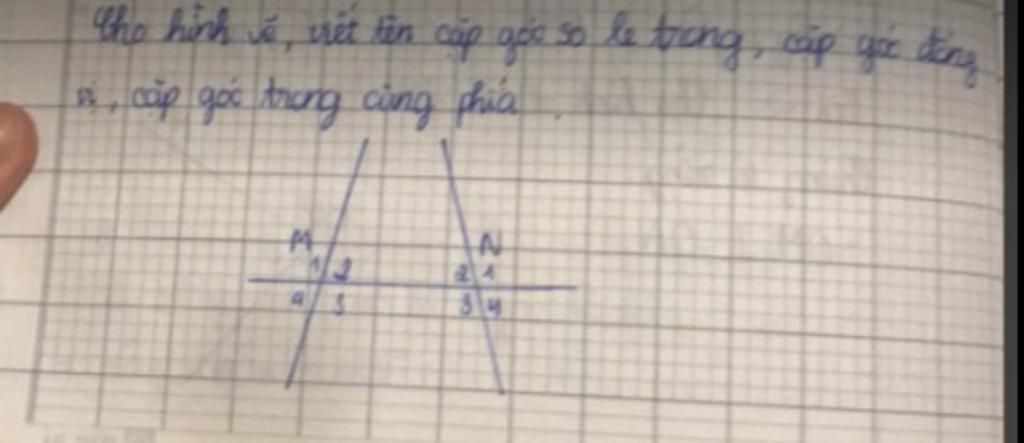 Cho hình vẽ, viết tên cặp góc so le trong, cặp góc đồng
vị, cặp góc trong cùng phía.
M N
1 2 2 1
4 3 3 4